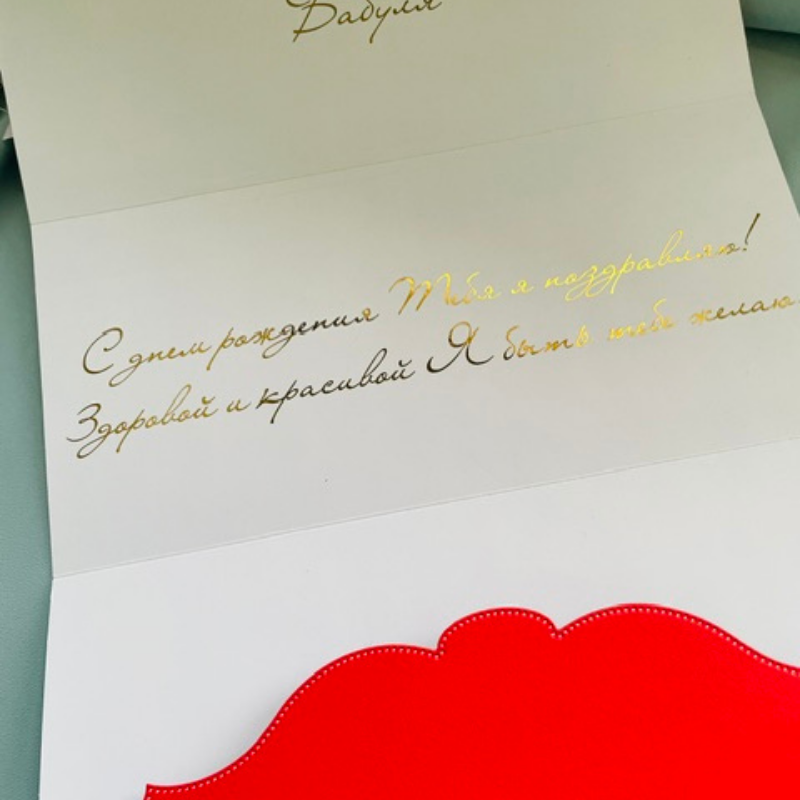 Бабуля
С днем рождения Тебя я поздравляю!
Здоровой и красивой Я быть тебе желаю.